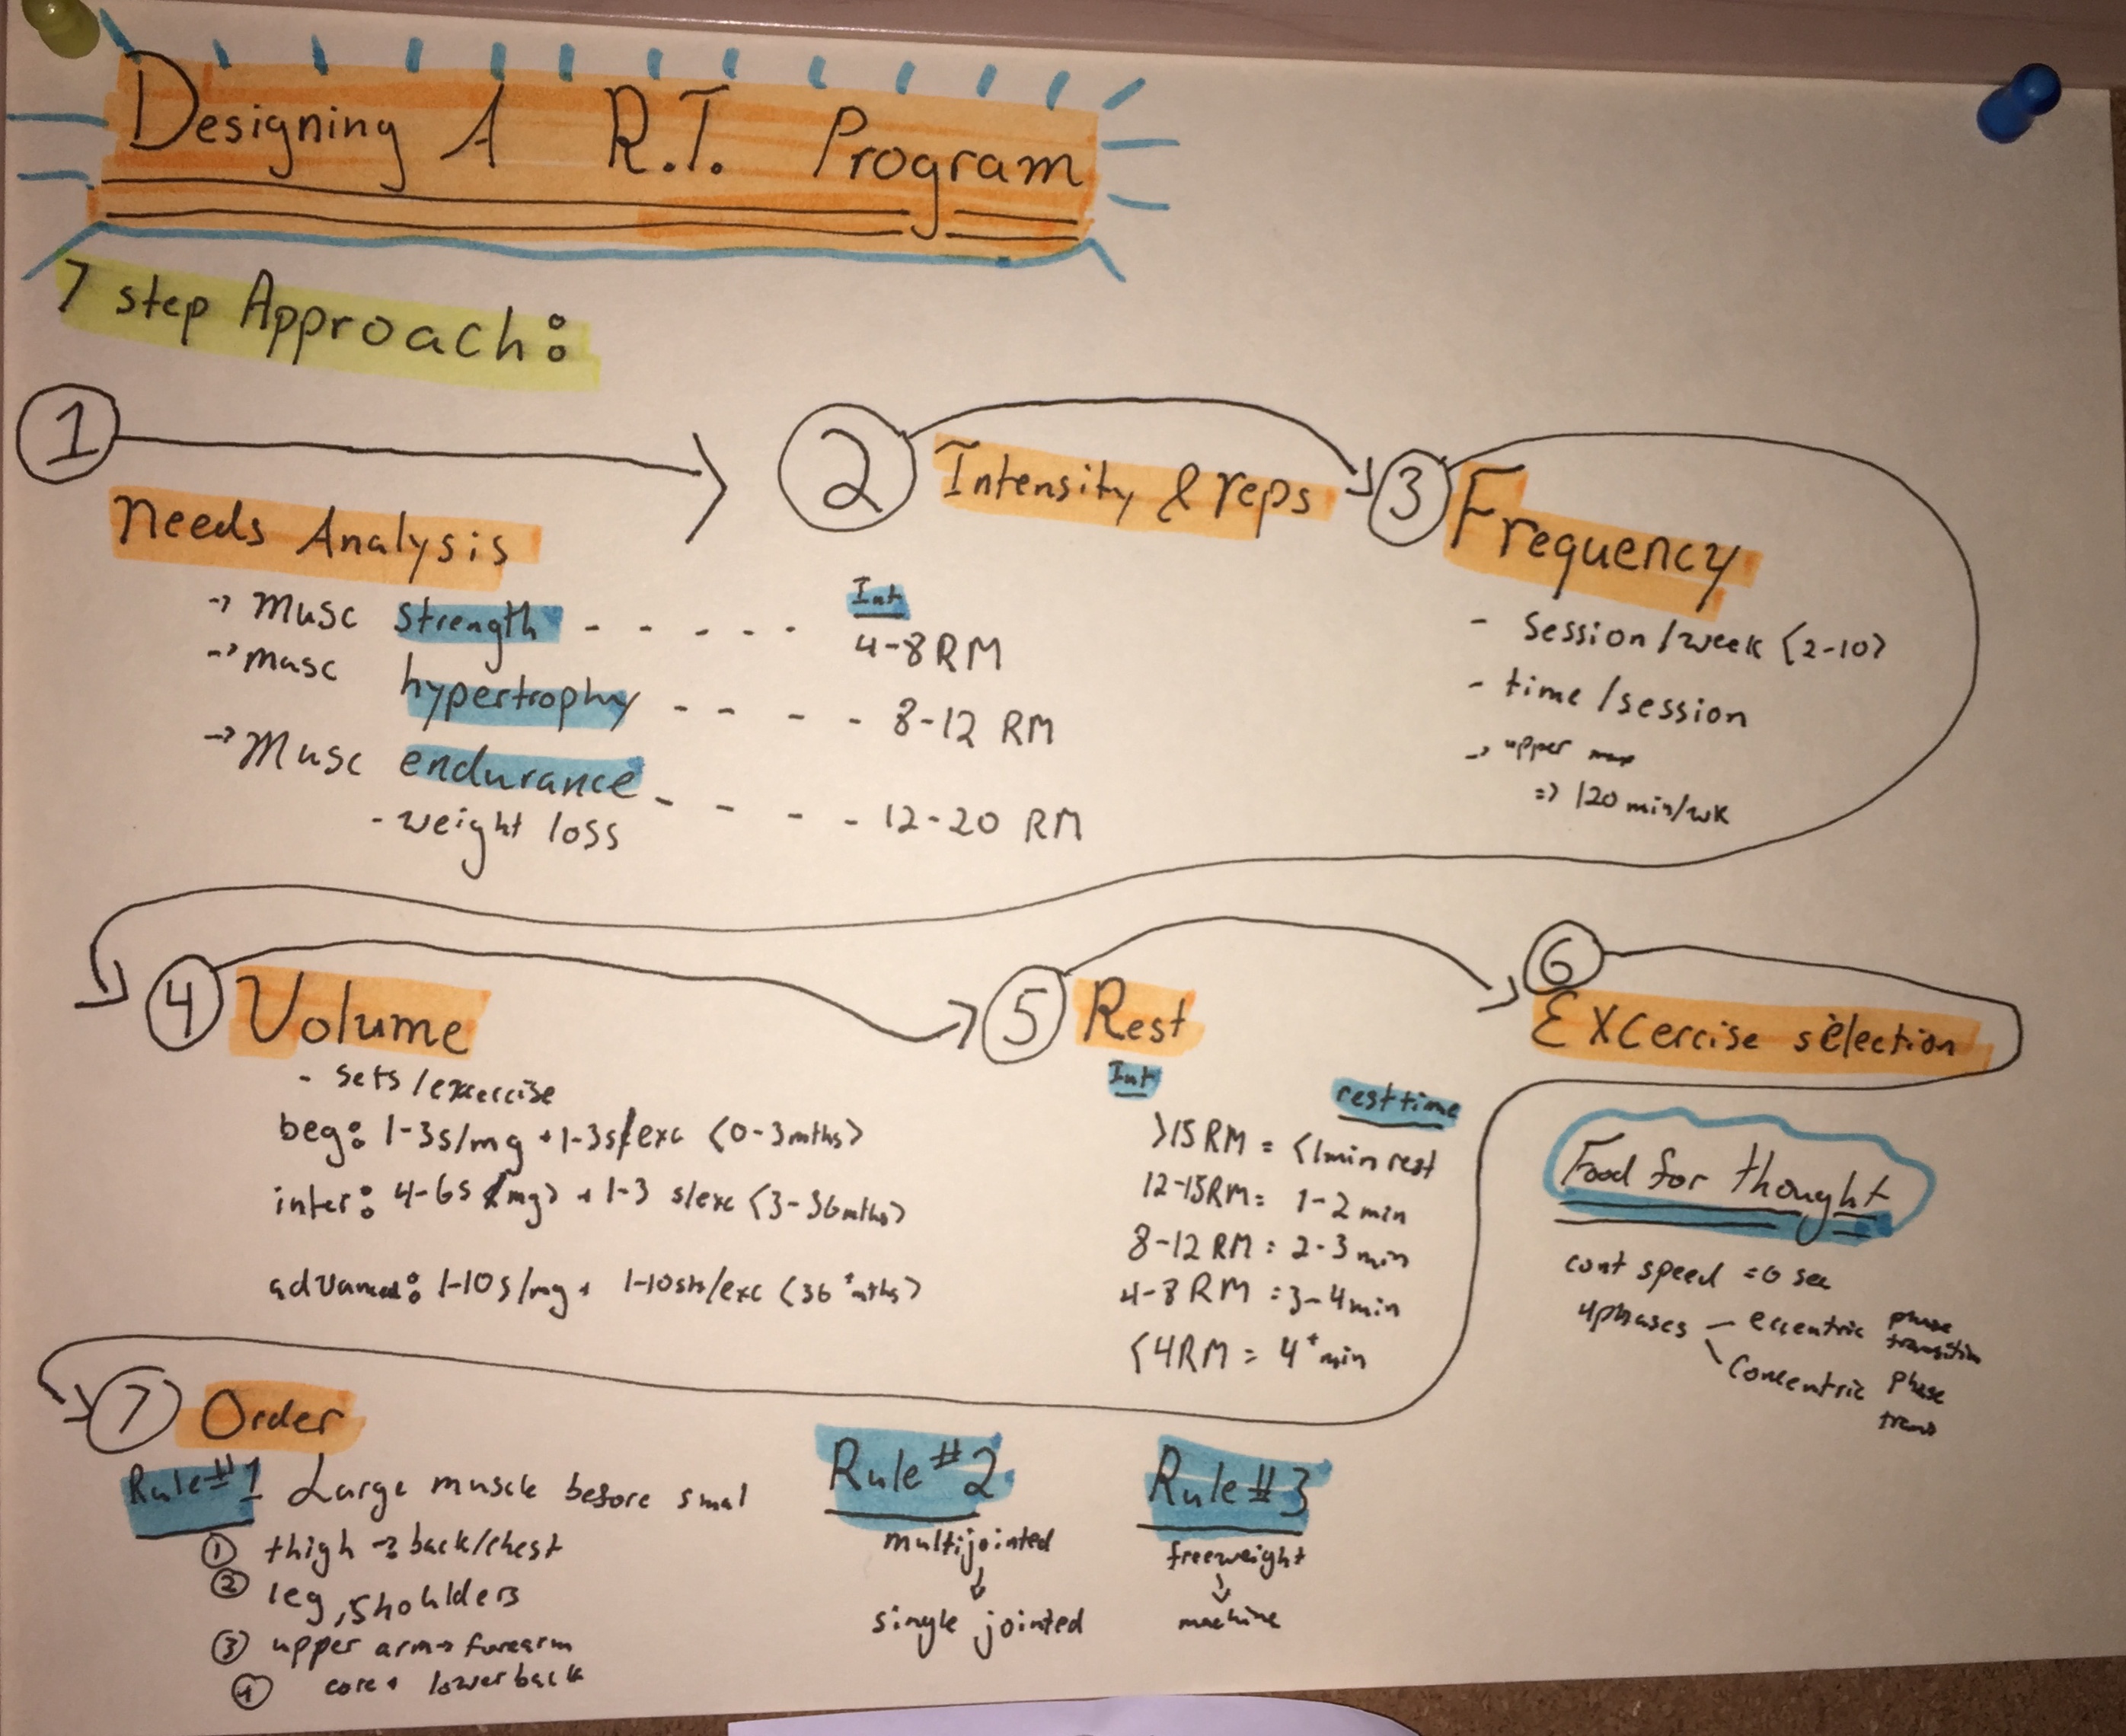 Designing A R.T. Program
7 step Approach:
1
Needs Analysis
→ Musc strength - - - - -
→ musc hypertrophy - - - -
→ Musc endurance - - - -
- weight loss
2 Intensity & reps
Int
4-8 RM
8-12 RM
12-20 RM
3 Frequency
- session/week <2-10>
- time/session
→ upper max
=> 120 min/wk
4 Volume
- sets/excercise
beg: 1-3s/mg + 1-3s/exc <0-3mths>
inter: 4-6s <mg> + 1-3 s/exc <3-36mths>
advanced: 1-10s/mg + 1-10sts/exc <36+mths>
5 Rest
Int rest time
>15 RM = <1min rest
12-15RM = 1-2 min
8-12 RM = 2-3 min
4-8 RM = 3-4min
<4RM = 4+ min
6
Excercise selection
Food for thought
cont speed = 6 sec
4phases - eccentric phase transition
concentric phase trans
7 Order
Rule #1 Large muscle before smal
1 thigh → back/chest
2 leg, shoulders
3 upper arm → forearm
4 core + lower back
Rule #2
multijointed
↓
single jointed
Rule #3
freeweight
↓
machine